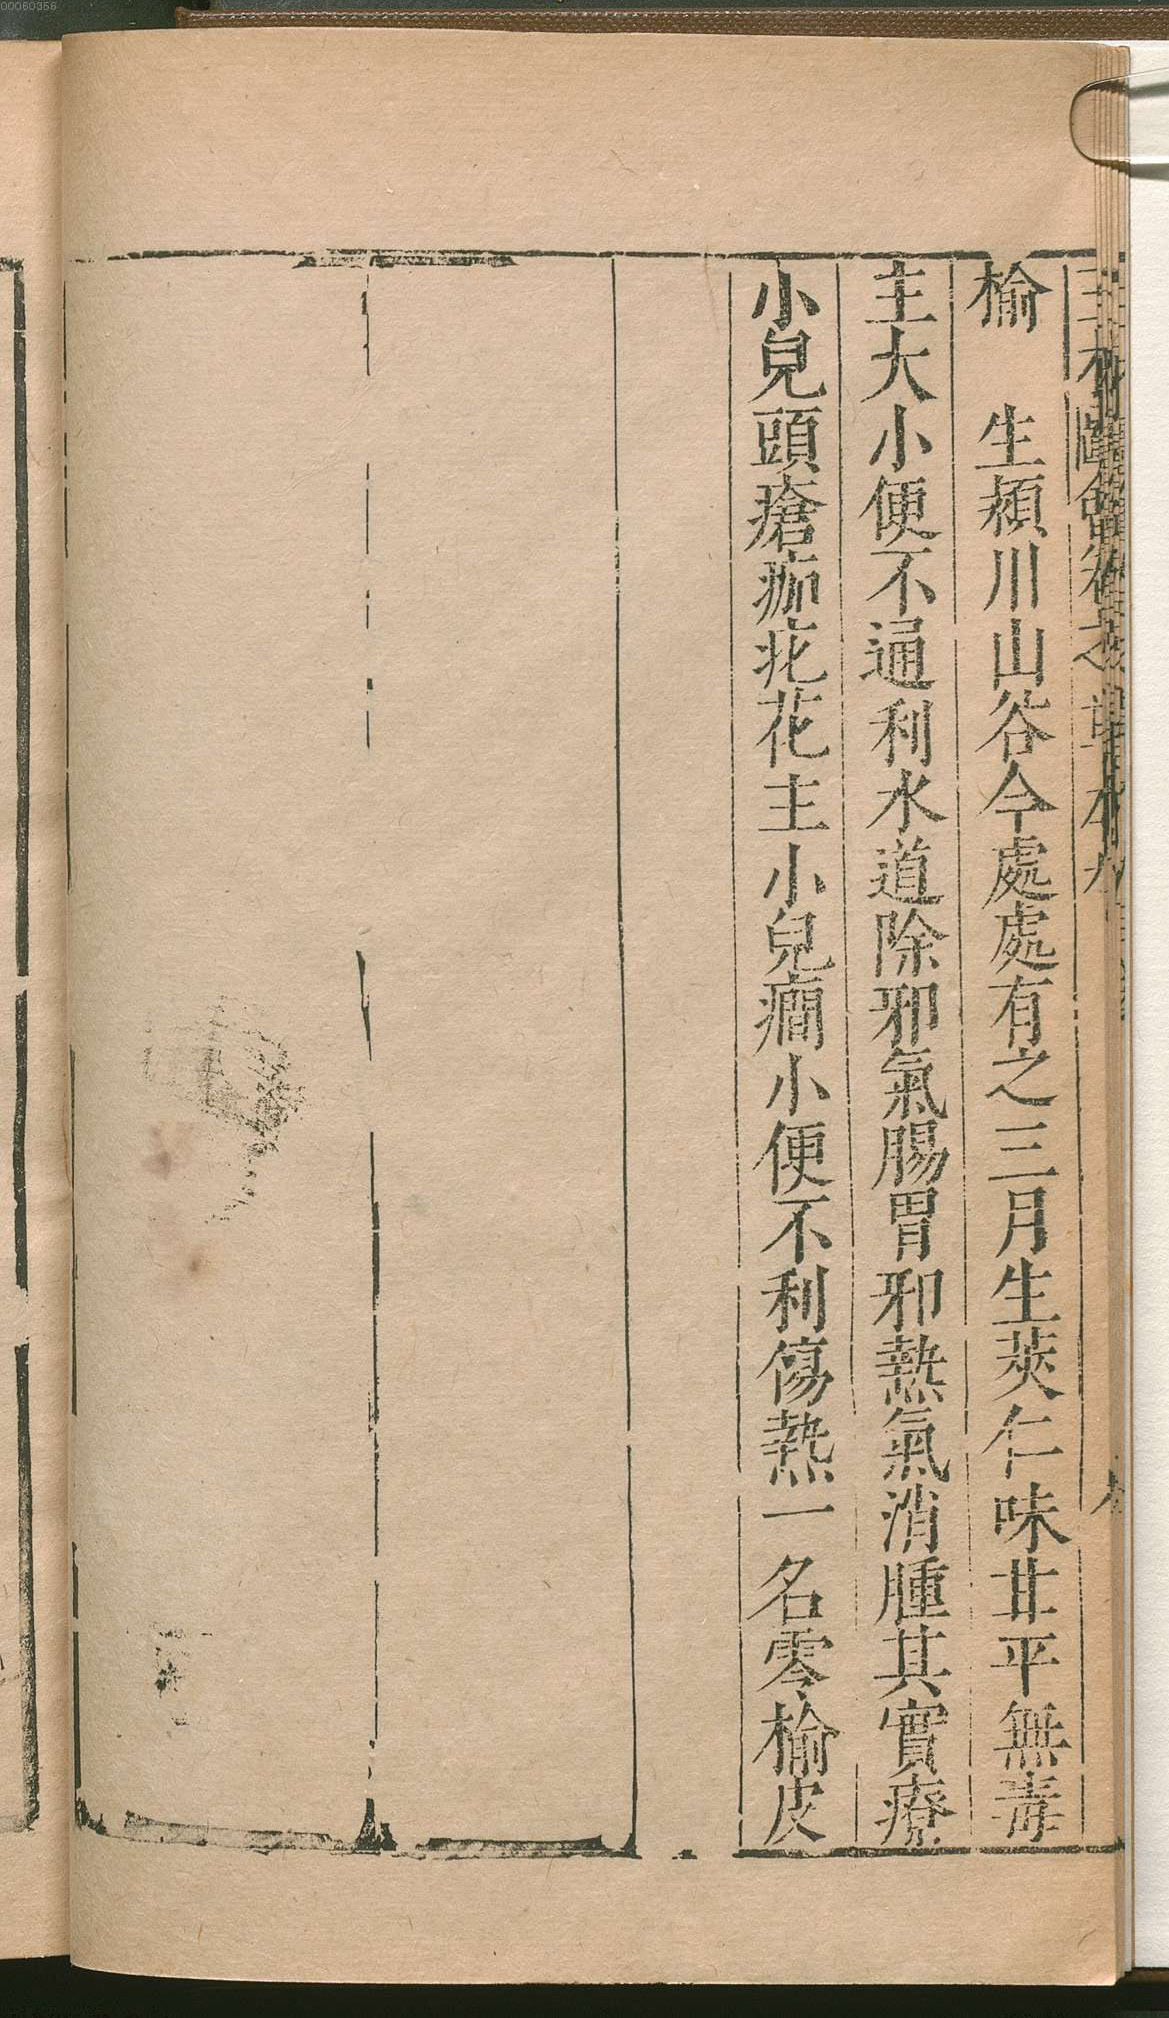 00060356
榆　生潁川山谷今處處有之三月生莢仁味甘平無毒
主大小便不通利水道除邪氣腸胃邪熱氣消腫其實療
小兒頭瘡痂疕花主小兒癎小便不利傷熱一名零榆皮